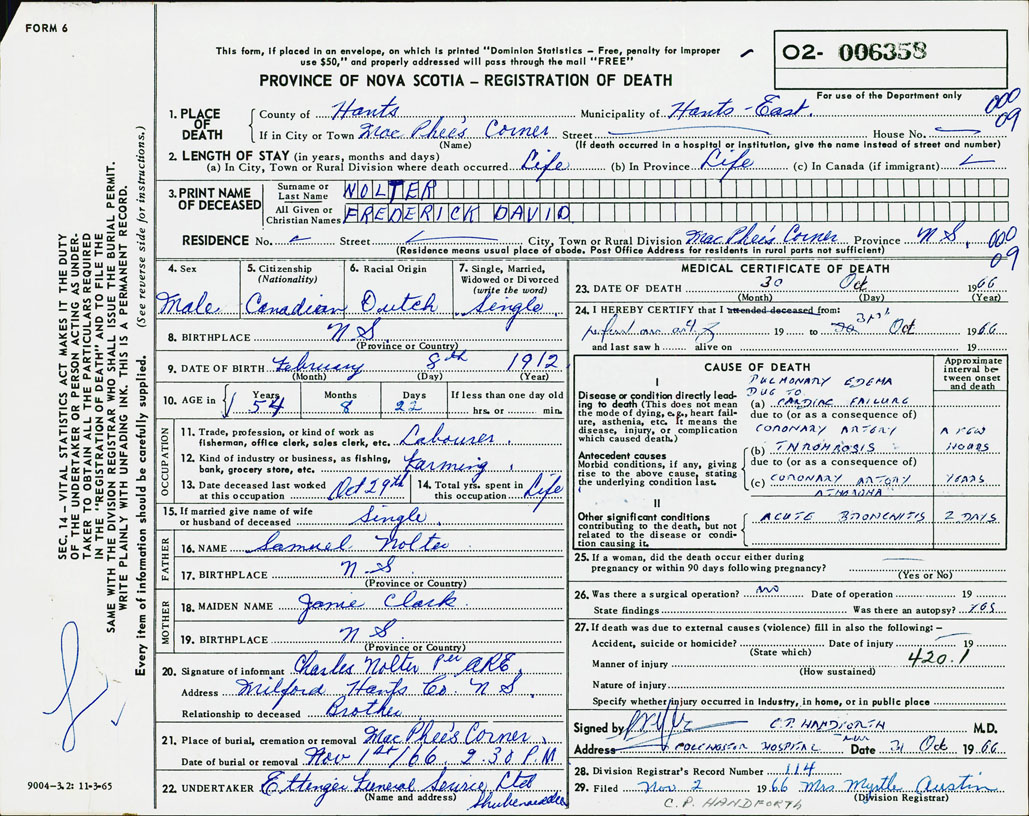 FORM 6
This form, if placed in an envelope, on which is printed "Dominion Statistics – Free, penalty for improper
use $50," and properly addressed will pass through the mail "FREE"
PROVINCE OF NOVA SCOTIA – REGISTRATION OF DEATH
O2- 006358
For use of the Department only
000
09
1. PLACE OF DEATH
County of Hants Municipality of Hants - East.
If in City or Town MacPhee's Corner Street House No.
(Name) (If death occurred in a hospital or institution, give the name instead of street and number)
2. LENGTH OF STAY (in years, months and days)
(a) In City, Town or Rural Division where death occurred Life (b) In Province Life (c) In Canada (if immigrant)
3. PRINT NAME OF DECEASED
Surname or Last Name NOLTER
All Given or Christian Names FREDERICK DAVID
RESIDENCE No. Street City, Town or Rural Division MacPhee's Corner Province N S,
(Residence means usual place of abode. Post Office Address for residents in rural parts not sufficient)
000
09
4. Sex Male
5. Citizenship (Nationality) Canadian
6. Racial Origin Dutch
7. Single, Married, Widowed or Divorced (write the word) Single
8. BIRTHPLACE N S.
(Province or Country)
9. DATE OF BIRTH February 8th 1912
(Month) (Day) (Year)
10. AGE in Years 54 Months 8 Days 22 If less than one day old hrs. or min.
OCCUPATION
11. Trade, profession, or kind of work as fisherman, office clerk, sales clerk, etc. Labourer.
12. Kind of industry or business, as fishing, bank, grocery store, etc. Farming.
13. Date deceased last worked at this occupation Oct 29th 14. Total yrs. spent in this occupation Life
15. If married give name of wife or husband of deceased Single
FATHER
16. NAME Samuel Nolter
17. BIRTHPLACE N S.
(Province or Country)
MOTHER
18. MAIDEN NAME Janie Clark.
19. BIRTHPLACE N S.
(Province or Country)
20. Signature of informant Charles Nolter per ARE.
Address Milford Hants Co. N S.
Relationship to deceased Brother
21. Place of burial, cremation or removal MacPhee's Corner.
Date of burial or removal Nov 1st/66 2.30 P.M
22. UNDERTAKER Ettinger Funeral Service Ltd
(Name and address) Shubenacadie
MEDICAL CERTIFICATE OF DEATH
23. DATE OF DEATH 30 Oct 1966
(Month) (Day) (Year)
24. I HEREBY CERTIFY that I attended deceased from:
19 to 31st Oct 1966
and last saw h alive on 19
CAUSE OF DEATH
Approximate interval between onset and death
I
Disease or condition directly leading to death (This does not mean the mode of dying, e.g., heart failure, asthenia, etc. It means the disease, injury, or complication which caused death.)
PULMONARY EDEMA
DUE TO
(a) CARDIAC FAILURE
due to (or as a consequence of)
CORONARY ARTERY A FEW
Antecedent causes
Morbid conditions, if any, giving rise to the above cause, stating the underlying condition last.
(b) THROMBOSIS HOURS
due to (or as a consequence of)
(c) CORONARY ARTERY YEARS
ATHEROMA
II
Other significant conditions contributing to the death, but not related to the disease or condition causing it.
ACUTE BRONCHITIS 2 DAYS
25. If a woman, did the death occur either during
pregnancy or within 90 days following pregnancy?
(Yes or No)
26. Was there a surgical operation? NO Date of operation 19
State findings Was there an autopsy? YES
27. If death was due to external causes (violence) fill in also the following: –
Accident, suicide or homicide? Date of injury 19
(State which)
420.1
Manner of injury
(How sustained)
Nature of injury
Specify whether injury occurred in industry, in home, or in public place
Signed by C.P. HANDFORTH M.D.
Address COLCHESTER HOSPITAL Date 31 Oct 1966
28. Division Registrar's Record Number 114
29. Filed Nov. 2 1966 Mrs. Myrtle Austin
(Division Registrar)
C.P. HANDFORTH
SEC. 14 – VITAL STATISTICS ACT MAKES IT THE DUTY
OF THE UNDERTAKER OR PERSON ACTING AS UNDER-
TAKER TO OBTAIN ALL THE PARTICULARS REQUIRED
IN THE "REGISTRATION OF DEATH" AND TO FILE THE
SAME WITH THE DIVISION REGISTRAR WHO SHALL ISSUE THE BURIAL PERMIT.
WRITE PLAINLY WITH UNFADING INK. THIS IS A PERMANENT RECORD.
Every item of information should be carefully supplied. (See reverse side for instructions.)
9004-3.2: 11-3-65